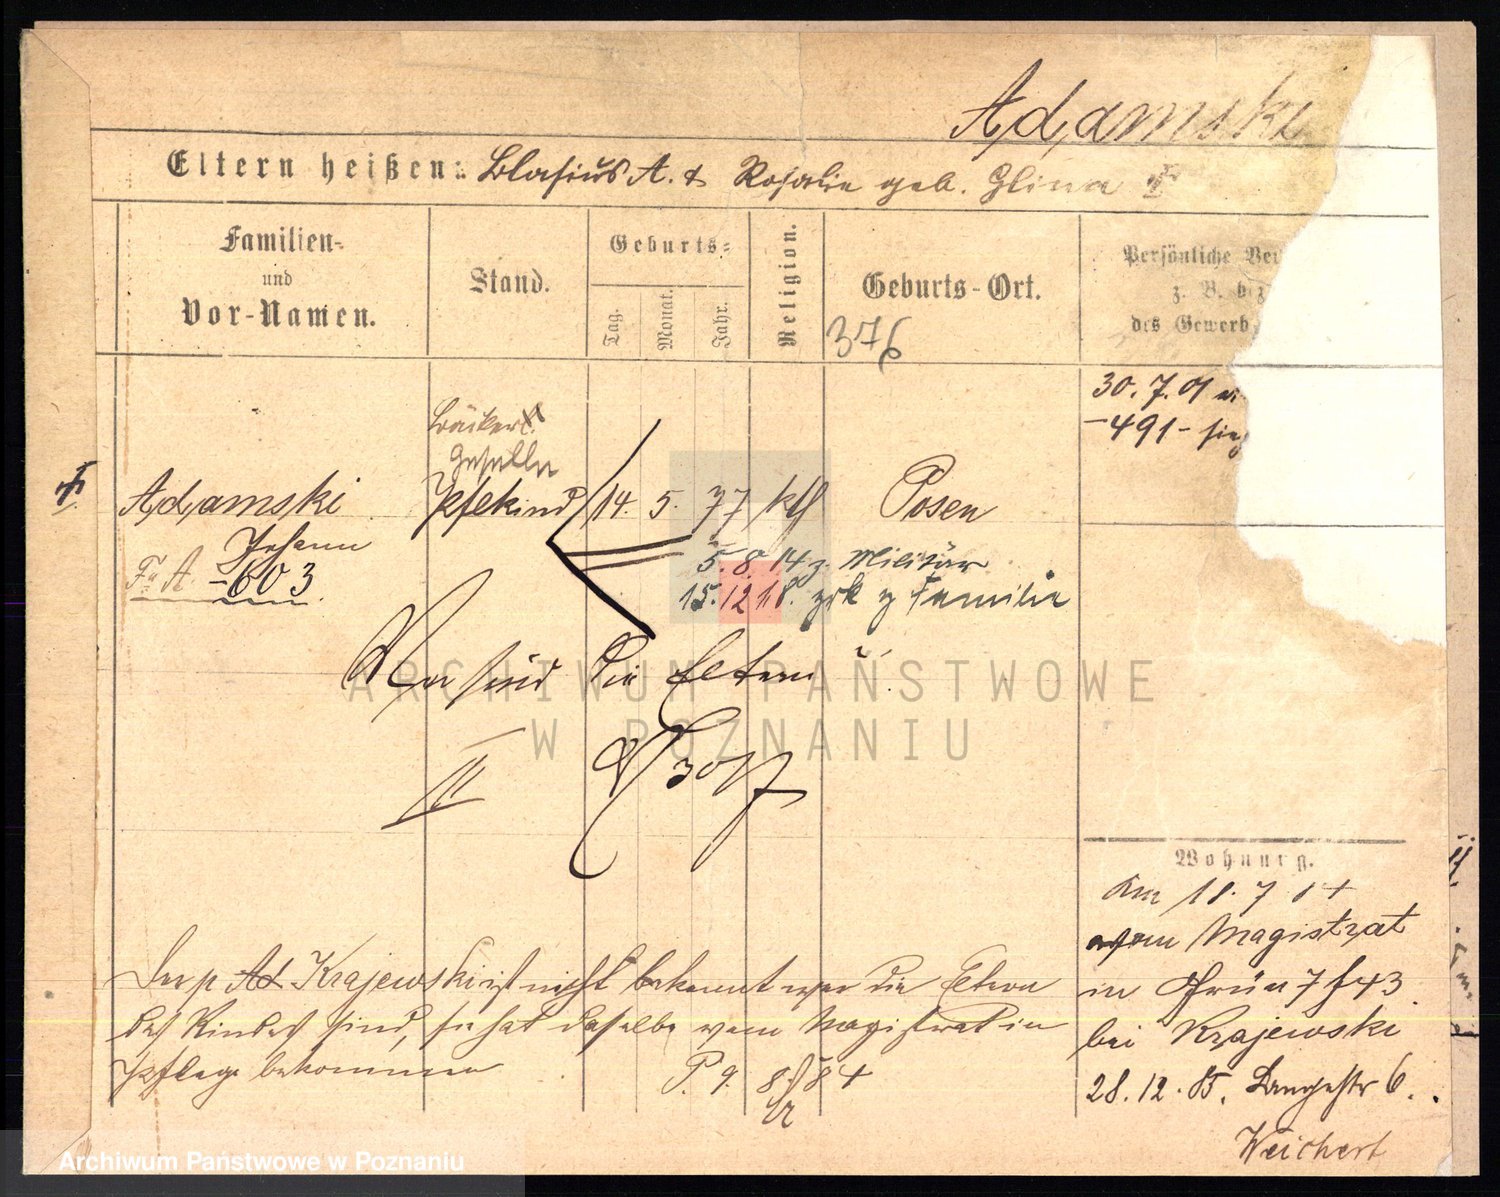 Adamski
Eltern heißen: Blasius A. & Rosalie geb. Glina
Familien-
und
Vor-Namen.
Stand.
Geburts-
Tag.
Monat.
Jahr.
Religion.
Geburts-Ort.
376
Persönliche Ver
z. B. bez
des Gewerb
30. 7. 01
-491-
Bäcker
Geselle
Adamski
Johann
F. A. -603
Pflekind
14. 5. 77 kth
Posen
5. 8. 14 z. Militär
15. 12 18. zrk z Familie
Wer sind die Eltern?
II
ARCHIWUM PAŃSTWOWE
W POZNANIU
Der p Ad Krajewski ist nicht bekannt wer die Eltern
des Kindes sind, sie hat dasselbe vom Magistrat in
Pflege bekommen
P. 9. 8/8 84
Wohnung.
Am 18. 7 84
vom Magistrat
in
bei Krajewski
28. 12. 85. Langestr 6.
Weichert
Archiwum Państwowe w Poznaniu